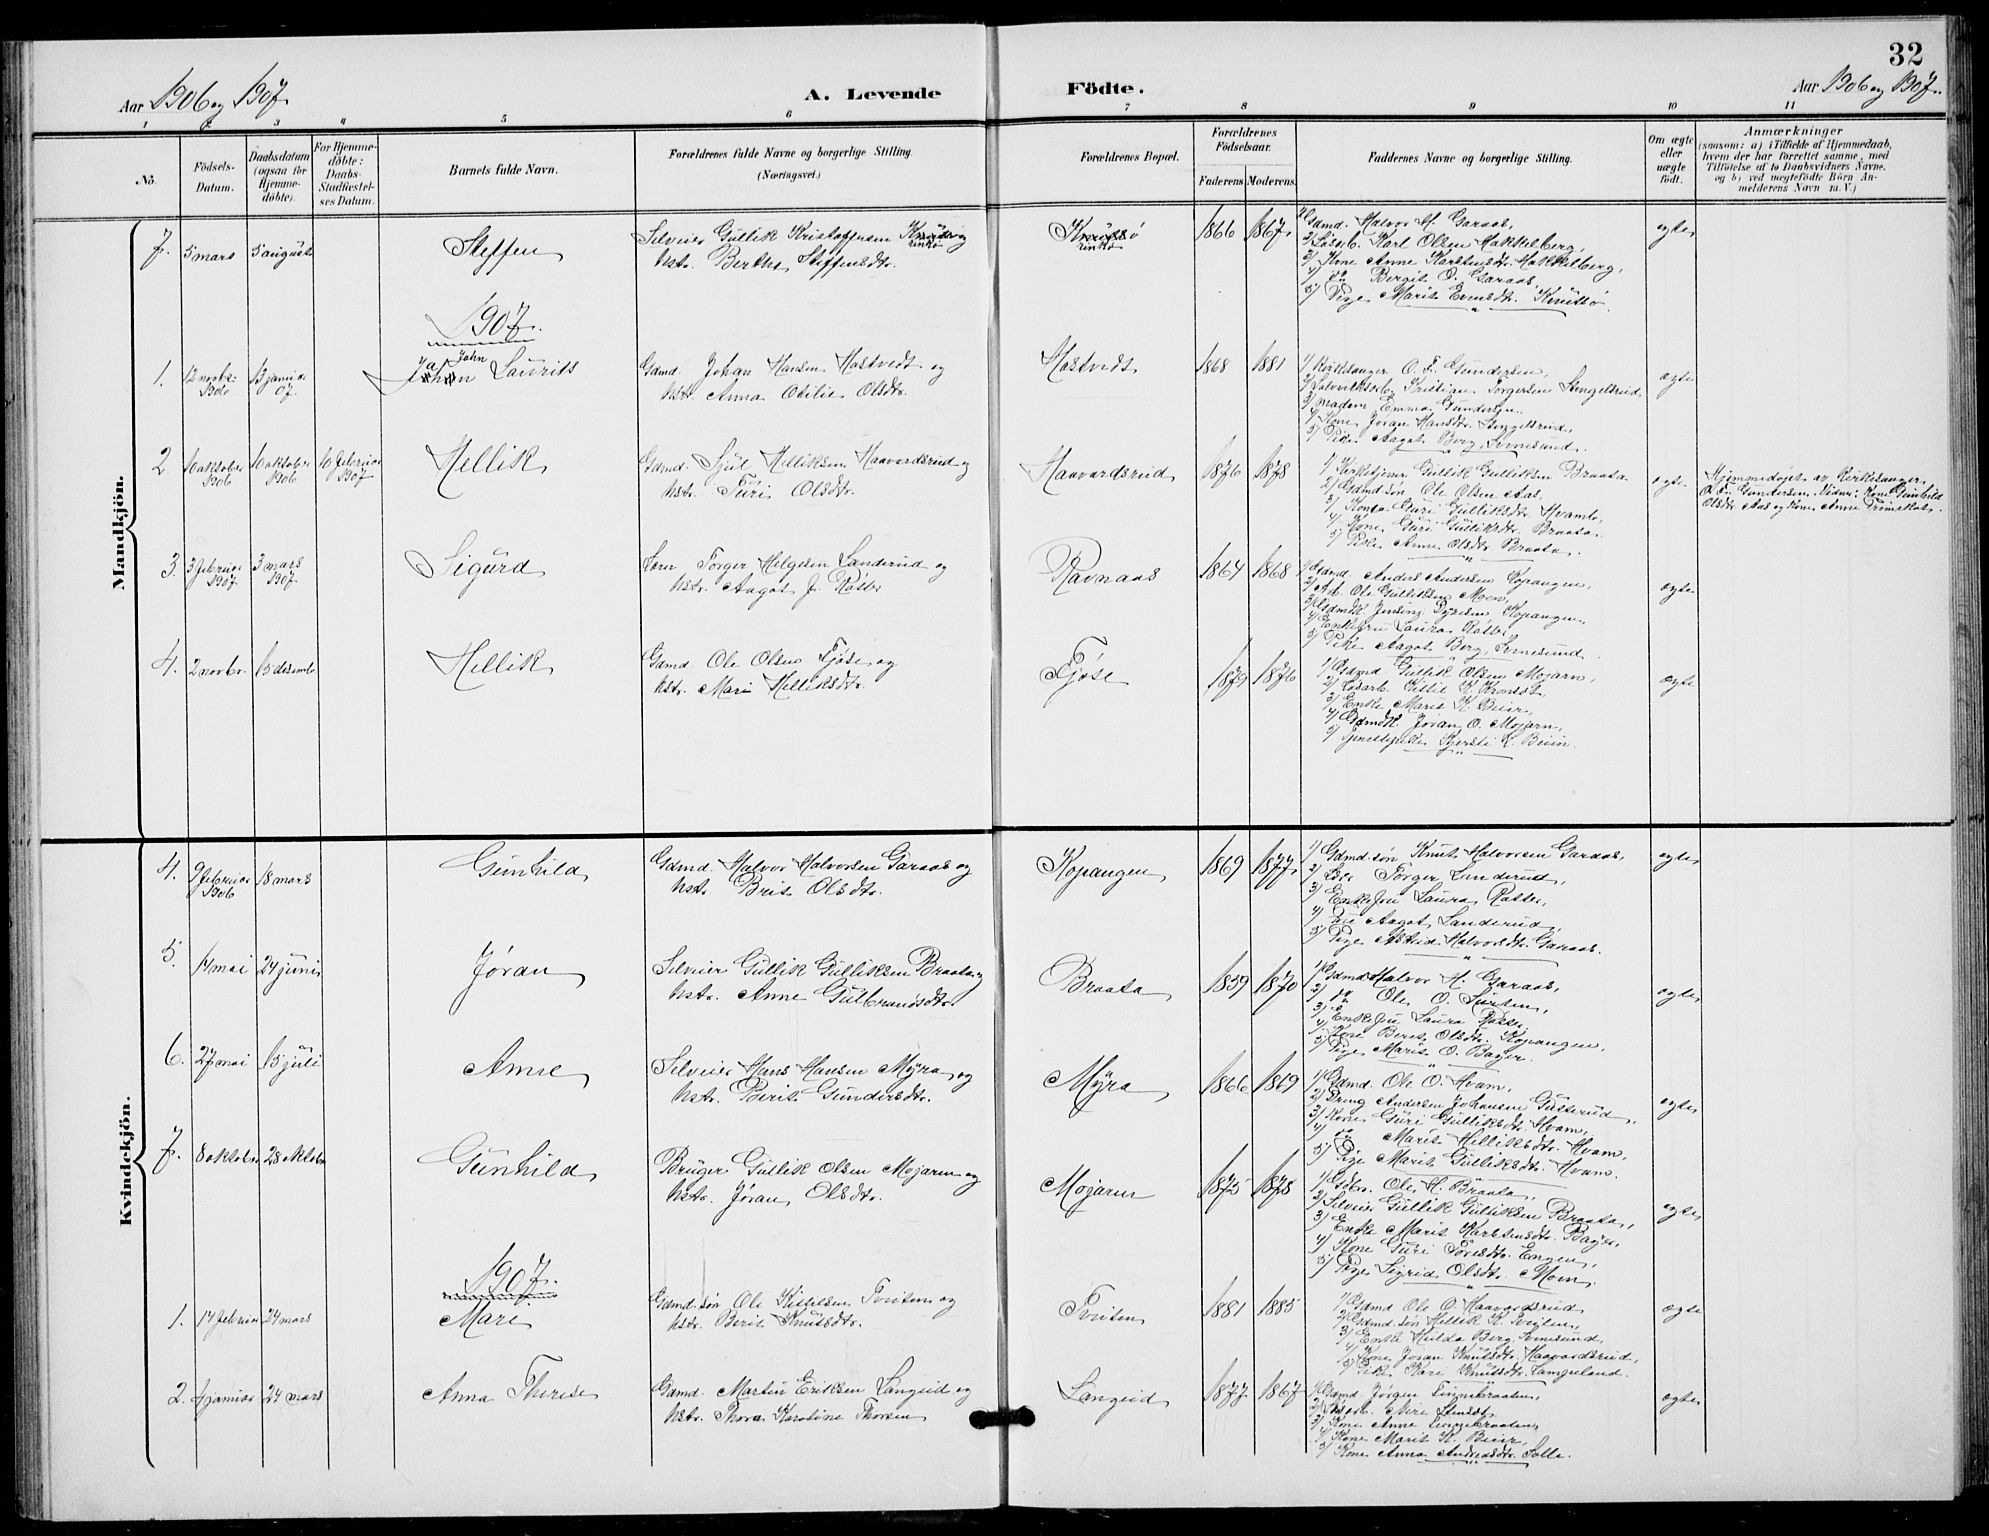 32
Aar 1906 og 1907.
A. Levende
Födte.
Aar 1906 og 1907.
1 2 3 4 5 6 7 8 9 10 11
No.
Födsels-
Datum.
Daabsdatum
(ogsaa for
Hjemme-
döbte).
For Hjemme-
döbte:
Daabs-
Stadfæstel-
ses Datum.
Barnets fulde Navn.
Forældrenes fulde Navne og borgerlige Stilling.
(Næringsvei.)
Forældrenes Bopæl.
Forældrenes
Födselsaar.
Faderens
Moderens.
Faddernes Navne og borgerlige Stilling.
Om ægte
eller
uægte
födt.
Anmærkninger
(saasom: a) i Tilfælde af Hjemmedaab,
hvem der har forrettet samme, med
Tilföielse af to Daabsvidners Navne,
og b) ved uægtefödte Börn An-
melderens Navn m. V.)
Mandkjön.
7. 5 mars 5 august Steffen
Selveier Gullik Kristoffersen
hstr. Berthe Steffensdtr.
1866 1867
1) Gdmd. Halvor H. Garaas,
2) Karl Olsen Hakkelberg,
3) Kone Anne Karlsensdtr. Hakkelberg,
4) do Bergit O. Garaas,
5) Pige Marit Evensdtr. Knutsø.
ægte
1907.
1. 12 novbr. 1906 13 januar 07. John Laurits
Gdmd. Johan Hansen Hostvedt og
hstr. Anna Otilie Olsdtr.
Hostvedt 1868 1881
1) Kirksanger O. F. Gundersen,
2) Kristian Torgersen Lengelsrud,
3) Madam Emma Gundersen,
4) Kone Jøran Hansdtr. Lengelsrud,
5) Pike Aagot Berg, Svenesund.
ægte
2. 16 oktober 1906 16 oktober 1906 10 februar 1907 Hellik
Gdmd. Sjul Helliksen Haavardsrud og
hstr. Turi Olsdtr.
Haavardsrud 1876 1878
1) Kirketjener Gullik Gulliksen Braata
2) Gdmd.søn Ole Olsen Aas,
3) Kone Guri Gulliksdtr. Hvamb,
4) Kone Guri Gulliksdtr. Braata,
5) Pike Anne Olsdtr. Braata.
ægte
Hjemmedøpt av Kirkesanger
O. F. Gundersen. Vidner: Kone Gunhild
Olsdtr. Aas og kone Anne
3. 3 februar 1907 3 mars 1907 Sigurd
Lærer Torger Helgesen Landerud og
hstr. Aagot J. Røtter
Ravnaas 1864 1868
1) Gdmd. Anders Andersen Kopangen,
2) Arb. Ole Gulliksen Moen,
3) Gdmdk. Jensine Kopangen,
4) Enkefru Laura Røtter,
5) Pike Aagot Berg, Svenesund.
ægte
4. 2 novbr. 15 desemb. Hellik
Gdmd. Ole Olsen Fjøse og
hstr. Mari Helliksdtr.
Fjøse 1879 1876
1) Gdmd Gullik Olsen Mojarn,
2) Løsarb. Kittil K.
3) Enke Marit K. Beier,
4) Gdmdk. Jøran O. Mojarn,
5) Kjersti K. Beiin.
ægte
Kvindekjön.
4. 9 februar 1906 18 mars Gunhild
Gdmd. Halvor Halvorsen Garaas og
hstr. Brit Olsdtr.
Kopangen 1869 1877
1) Gdmd.søn Knut Halvorsen Garaas,
2) Lær. Torger Landerud,
3) Enkefru Laura Røtter,
4) Fru Aagot Landerud,
5) Pige Astrid Halvorsdtr. Garaas.
ægte
5. 14 mai 24 juni Jøran
Selveier Gullik Gulliksen Braata og
hstr. Anne Gulbrandsdtr.
Braata 1859 1870
1) Gdmd Halvor H. Garaas,
2) do Ole O.
3) Enkefru Laura Røtter,
4) Kone Berit Olsdtr. Kopangen,
5) Pige Marit O. Bagen.
ægte
6. 27 mai 15 juli Anne
Selveier Hans Hansen Myra og
hstr. Berit Gundersdtr.
Myra 1866 1869
1) Gdmd. Ole O. Hvam,
2) Andersen Johansen Gusterud,
3) Kone Guri Gulliksdtr. Hvam,
4) do Marit Helliksdtr. Hvam,
5) Pige Marit Gulliksdtr. Hvam.
ægte
7. 8 oktober 28 oktober Gunhild
Bruger Gullik Olsen Mojaren og
hstr. Jøran Olsdtr.
Mojaren 1875 1878
1) Gdbr. Ole H. Braata,
2) Selveier Gullik Gulliksen Braata,
3) Enke Marit Karlsensdtr. Bager,
4) Kone Guri Toresdtr. Engen,
5) Pige Sigrid Olsdtr. Moen.
ægte
1907.
1. 14 februar 24 mars Mari
Gdmd.søn Ole Kittilsen Tviten og
hstr. Berit Knutsdtr.
Tviten 1881 1885
1) Gdmd Ole O. Haavardsrud
2) Gdmd.søn Hellik K. Tviten,
3) Enke Hulda Berg, Svenesund,
4) Kone Jøran Knutsdtr. Haavardsrud,
5) Pike Kari Knutsdtr. Langeland.
ægte
2. 4 januar 24 mars Anna Therese
Gdmd. Martin Eriksen Langeid og
hstr. Thora Karoline Thorsen
Langeid 1877 1867
1) Gdmd. Jørgen
2)
3) Kone Anne
4) Kone Marit K. Beier,
5) Kone Anna Andreasdtr. Solli.
ægte